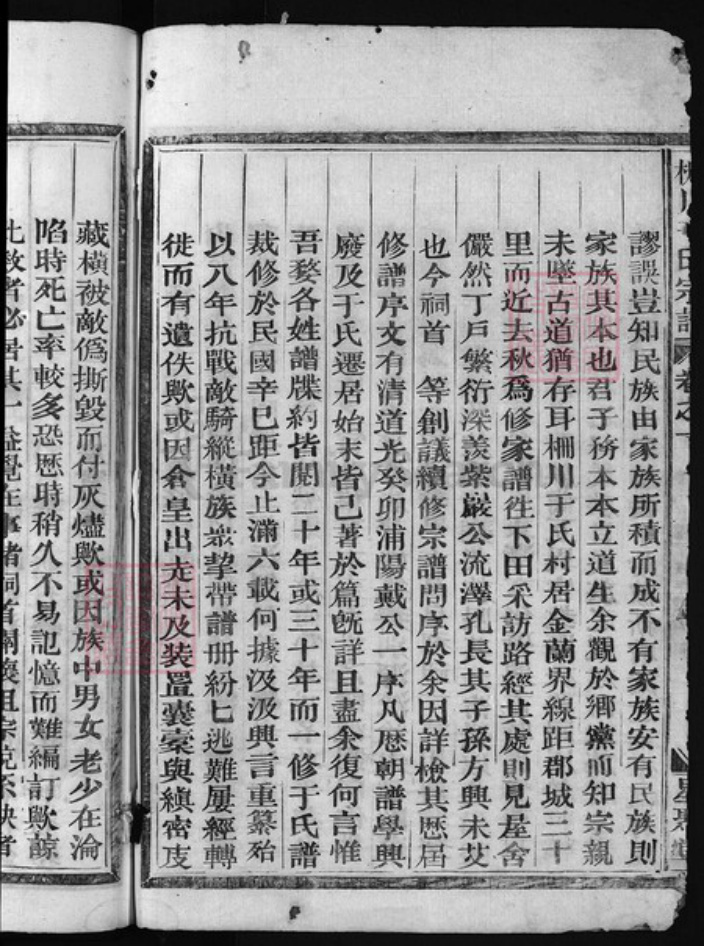 謬誤豈知民族由家族所積而成不有家族安有民族則
家族其本也君子務本本立道生余觀於鄉黨而知宗親
未墜古道猶存耳柵川于氏村居金蘭界線距郡城三十
里而近去秋爲修家譜徃下田采訪路經其處則見屋舍
儼然丁戶繁衍深羨紫巖公流澤孔長其子孫方興未艾
也今祠首　等創議續修宗譜問序於余因詳檢其歷屆
修譜序文有清道光癸卯浦陽戴公一序凡歷朝譜學興
廢及于氏遷居始末皆己著於篇旣詳且盡余復何言惟
吾婺各姓譜牒約皆閱二十年或三十年而一修于氏譜
裁修於民國辛巳距今止滿六載何據汲汲興言重纂殆
以八年抗戰敵騎縱橫族衆挈帶譜册紛匕逃難屢經轉
徙而有遺佚歟或因倉皇出走未及装置囊橐與縝密庋
藏橫被敵僞撕毀而付灰燼歟或因族中男女老少在淪
陷時死亡率較多恐歷時稍久不易記憶而難編訂歟諒
此數者必居其一益覺在事諸祠首關懷且宗
氏宗譜
卷之